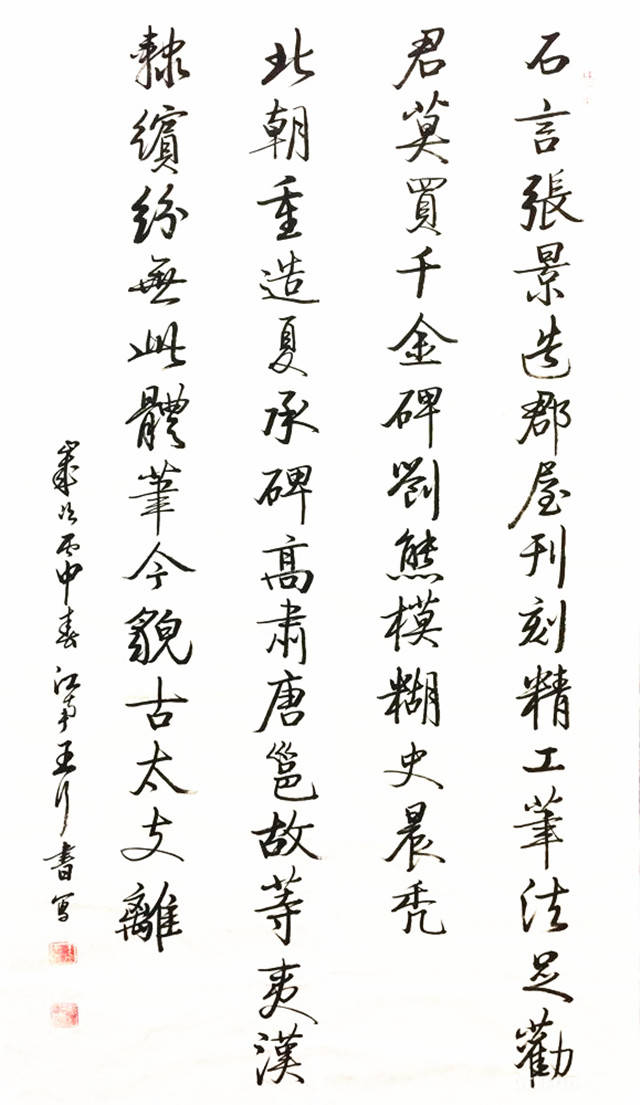 石言張景造郡屋刊刻精工筆法足勸
君莫買千金碑劉熊模糊史晨禿
北朝重造夏承碑高肅唐邕故等夷漢
隸繽紛無此體筆今貌古太支離
歲次丙申春 江南王行書寫